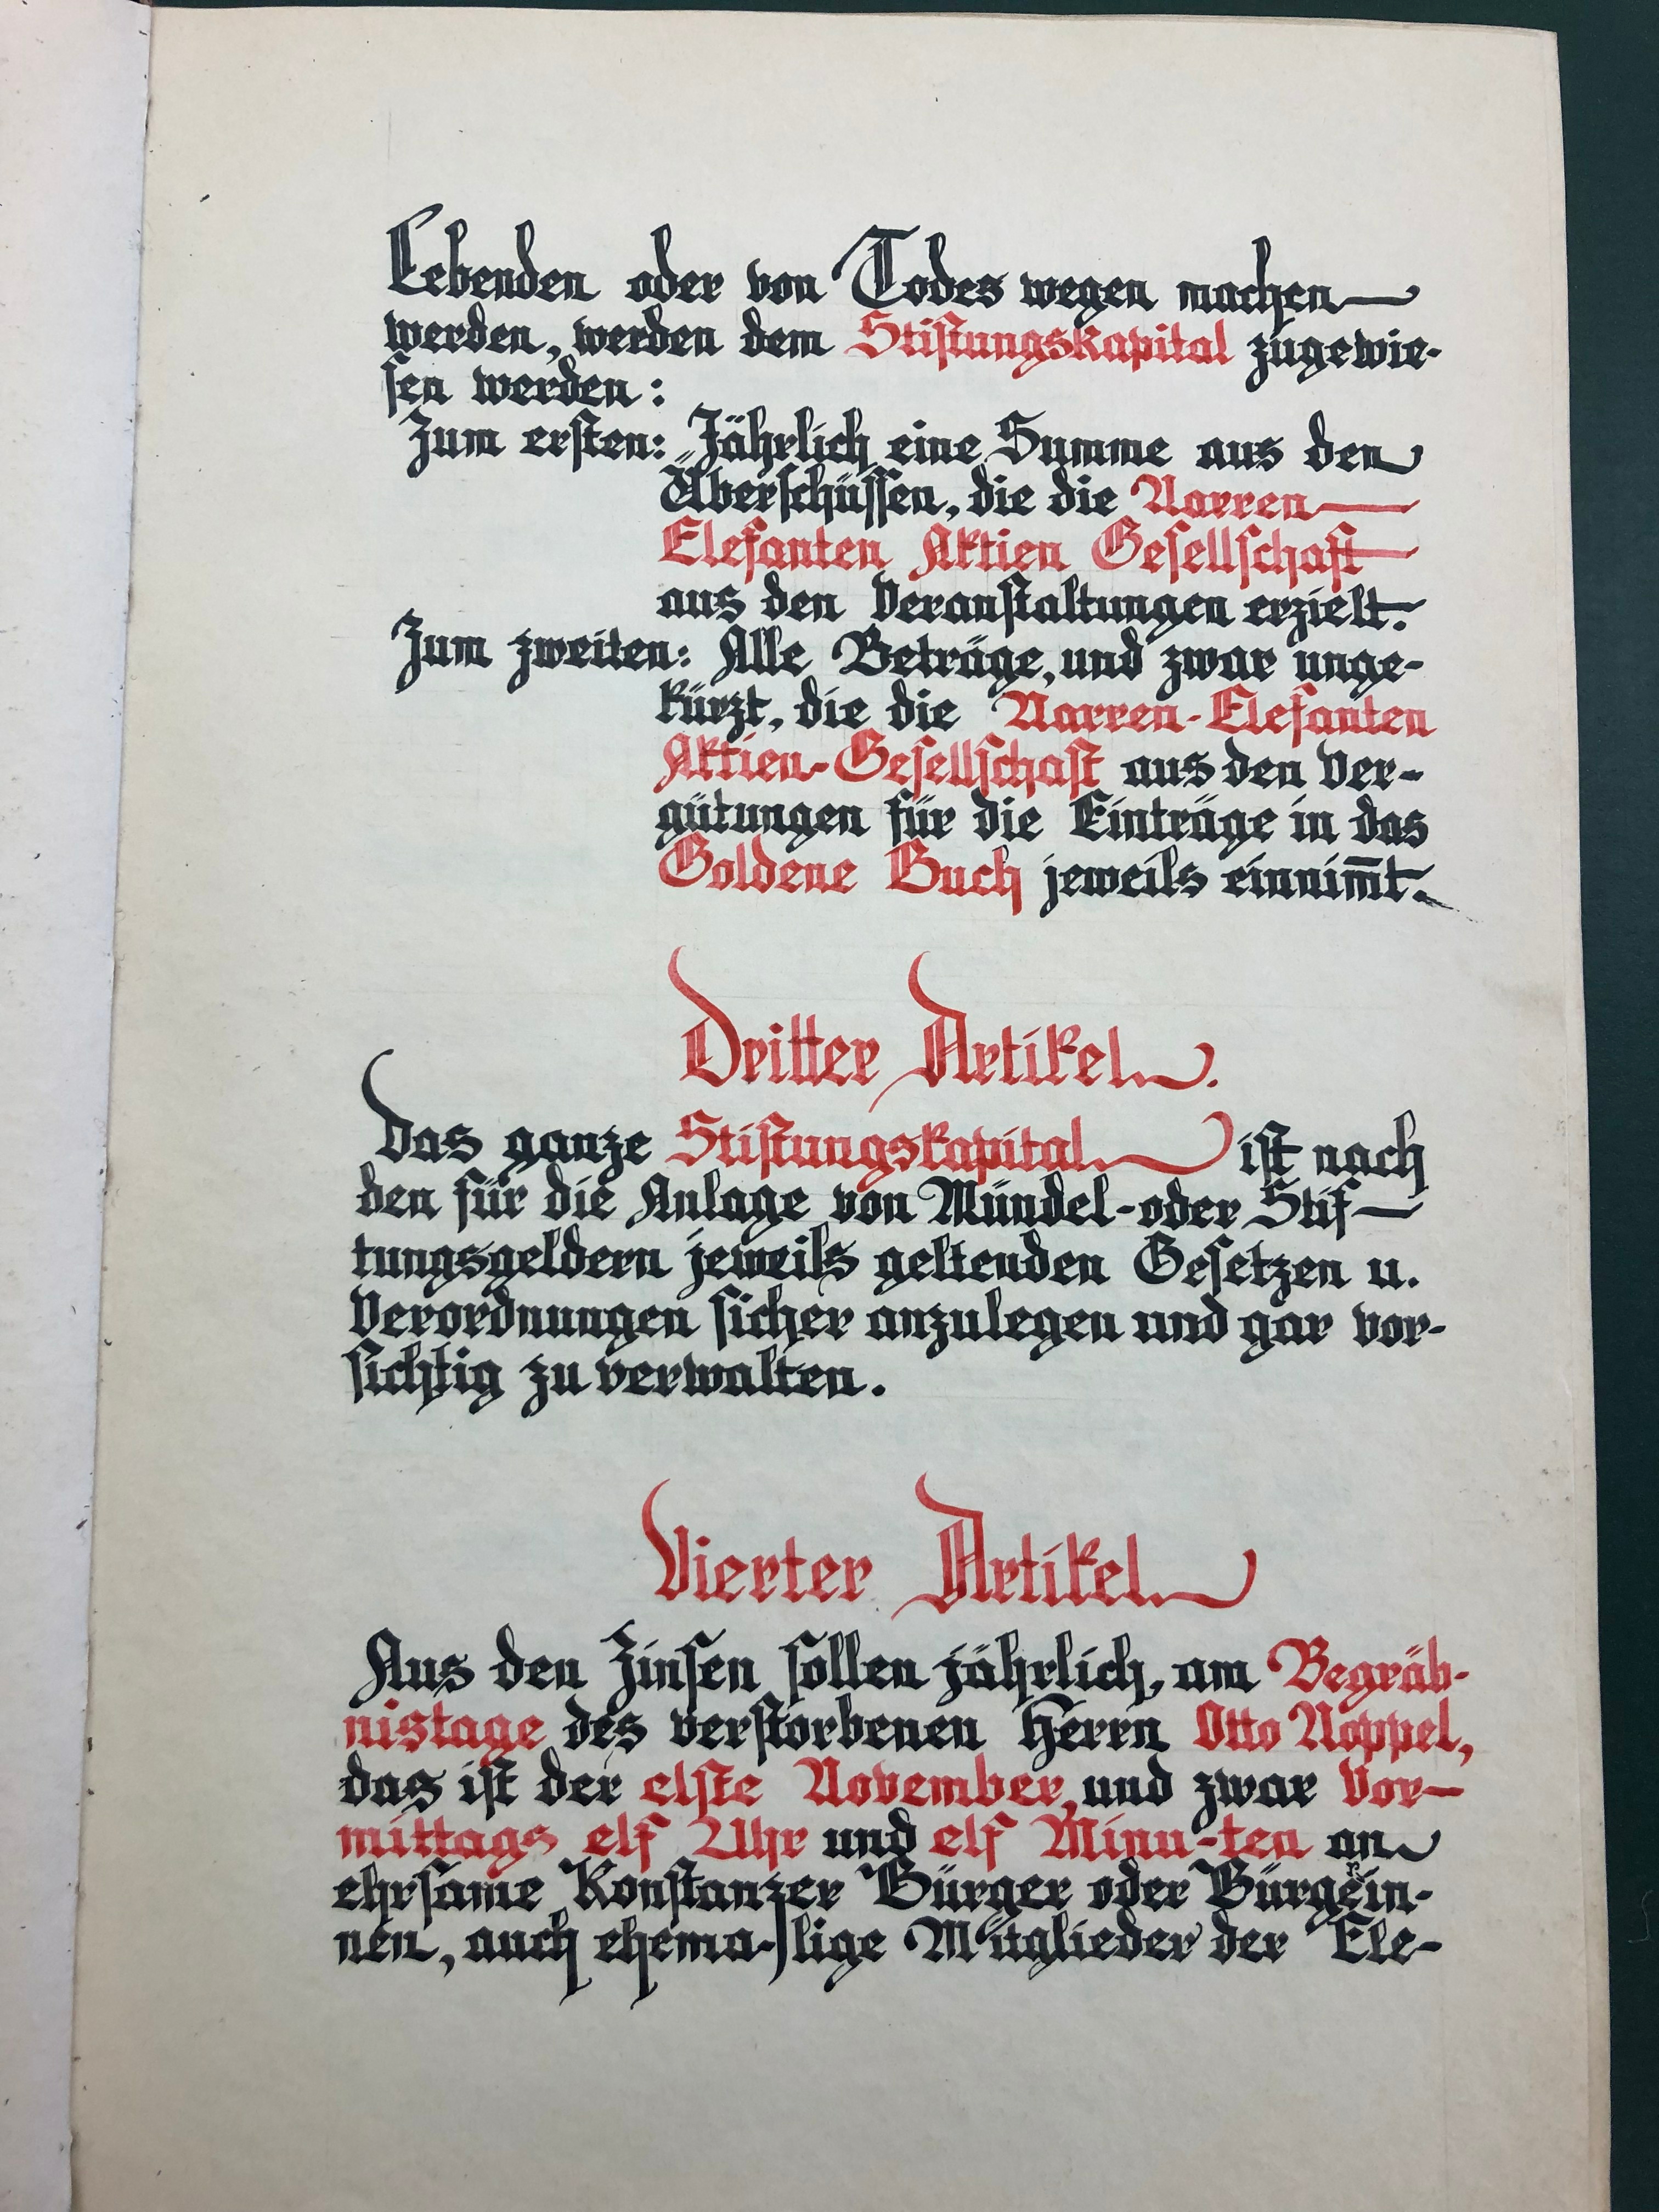 Lebenden oder von Todes wegen machen
werden, werden dem Stiftungskapital zugewie-
sen werden:
Zum ersten: Jährlich eine Summe aus den
Überschüssen, die die Narren
Elefanten Aktien Gesellschaft
aus den Veranstaltungen erzielt.
Zum zweiten: Alle Beträge, und zwar unge-
kürzt, die die Narren-Elefanten
Aktien-Gesellschaft aus den Ver-
gütungen für die Einträge in das
Goldene Buch jeweils einnim̅t.
Dritter Artikel.
Das ganze Stiftungskapital ist nach
den für die Anlage von Mündel-oder Stif-
tungsgeldern jeweils geltenden Gesetzen u.
Verordnungen sicher anzulegen und gar vor-
sichtig zu verwalten.
Vierter Artikel
Aus den Zinsen sollen jährlich, am Begräb-
nistage des verstorbenen Herrn Otto Noppel,
das ist der elfte November, und zwar Vor-
mittags elf Uhr und elf Minu-ten an
ehrsame Konstanzer Bürger oder Bürgerin-
nen, auch ehema-lige Mitglieder der Ele-